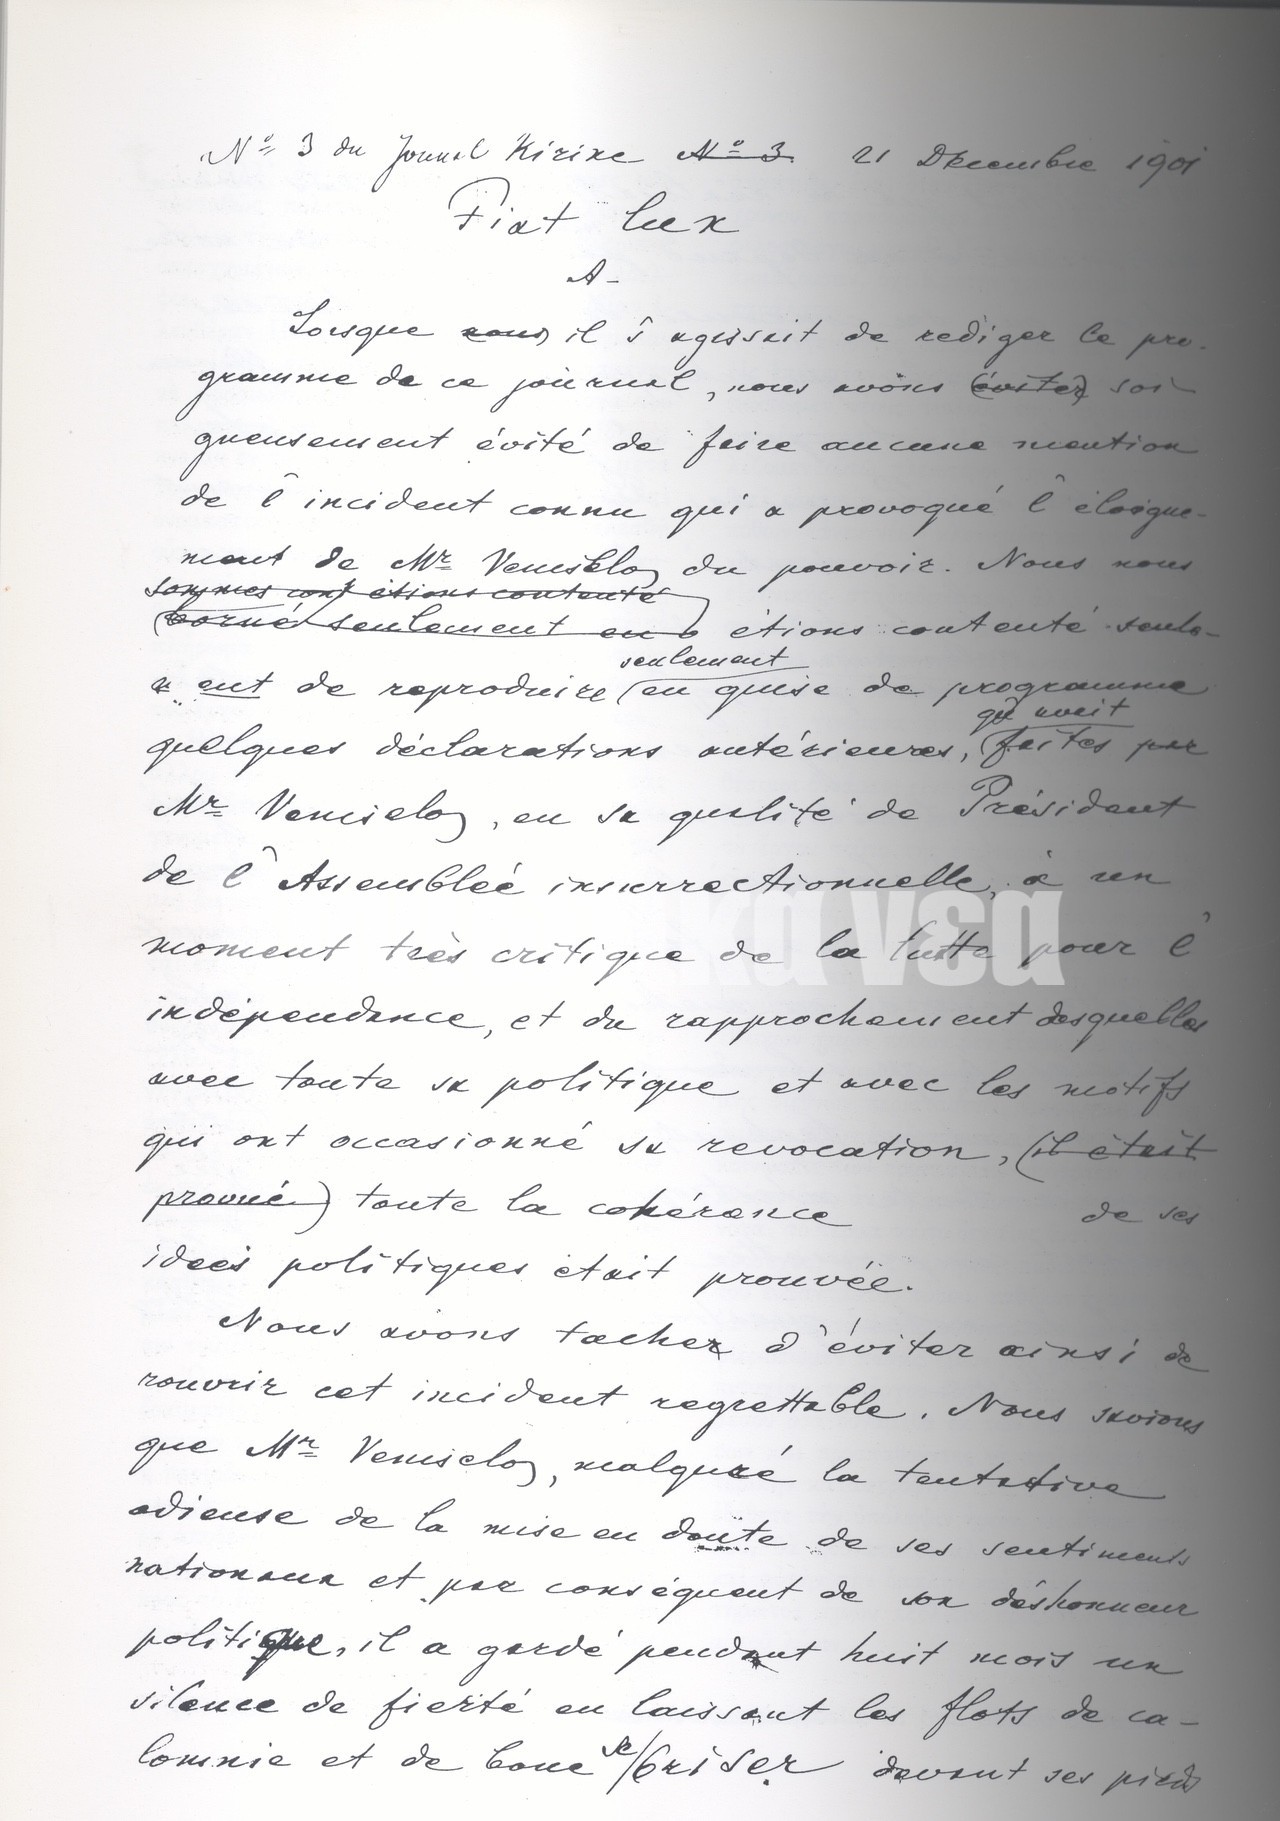 Nº 3 du Journal Kirixe Nº 3. 21 Décembre 1901
Fiat lux
A-
Lorsque nous il s'agissait de rediger le pro-
gramme de ce journal, nous avons (éviter) soi-
gneusement évité de faire aucune mention
de l'incident connu qui a provoqué l'éloigne-
ment de Mr Veniselos du pouvoir. Nous nous
sommes cont étions contenté
(borné seulement en) étions contenté seule-
ment de reproduire (en guise de programme
seulement
quelques déclarations antérieures, (faites par
qu'avait
Mr Veniselos, en sa qualité de Président
de l'Assembleé insurrectionnelle, à un
moment très critique de la lutte pour l'
indépendance, et du rapprochement desquelles
avec toute sa politique et avec les motifs
qui ont occasionné sa revocation, (il était
prouvé) toute la cohérance de ses
ideés politiques était prouvée.
Nous avons tacher d'éviter ainsi de
rouvrir cet incident regrettable. Nous savions
que Mr Veniselos, malgré la tentative
odieuse de la mise en doute de ses sentiments
nationaux et par conséquent de son déshonneur
politique, il a gardé pendant huit mois un
silence de fierté en laissant les flots de ca-
lomnie et de boue se/briser devant ses pieds
καΨεα